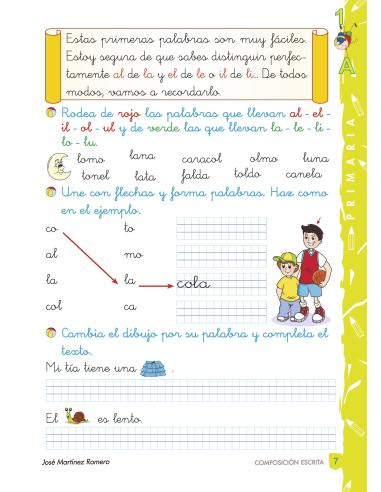 Estas primeras palabras son muy fáciles.
Estoy segura de que sabes distinguir perfec-
tamente al de la y el de le o il de li... De todos
modos, vamos a recordarlo.
Rodea de rojo las palabras que llevan al - el -
il - ol - ul y de verde las que llevan la - le - li -
lo - lu.
lomo lana caracol olmo luna
tonel lata falda toldo canela
Une con flechas y forma palabras. Haz como
en el ejemplo.
co to
al mo
la la cola
col ca
Cambia el dibujo por su palabra y completa el
texto.
Mi tía tiene una .
El es lento.
José Martínez Romero COMPOSICIÓN ESCRITA 7
1
A
PRIMARIA